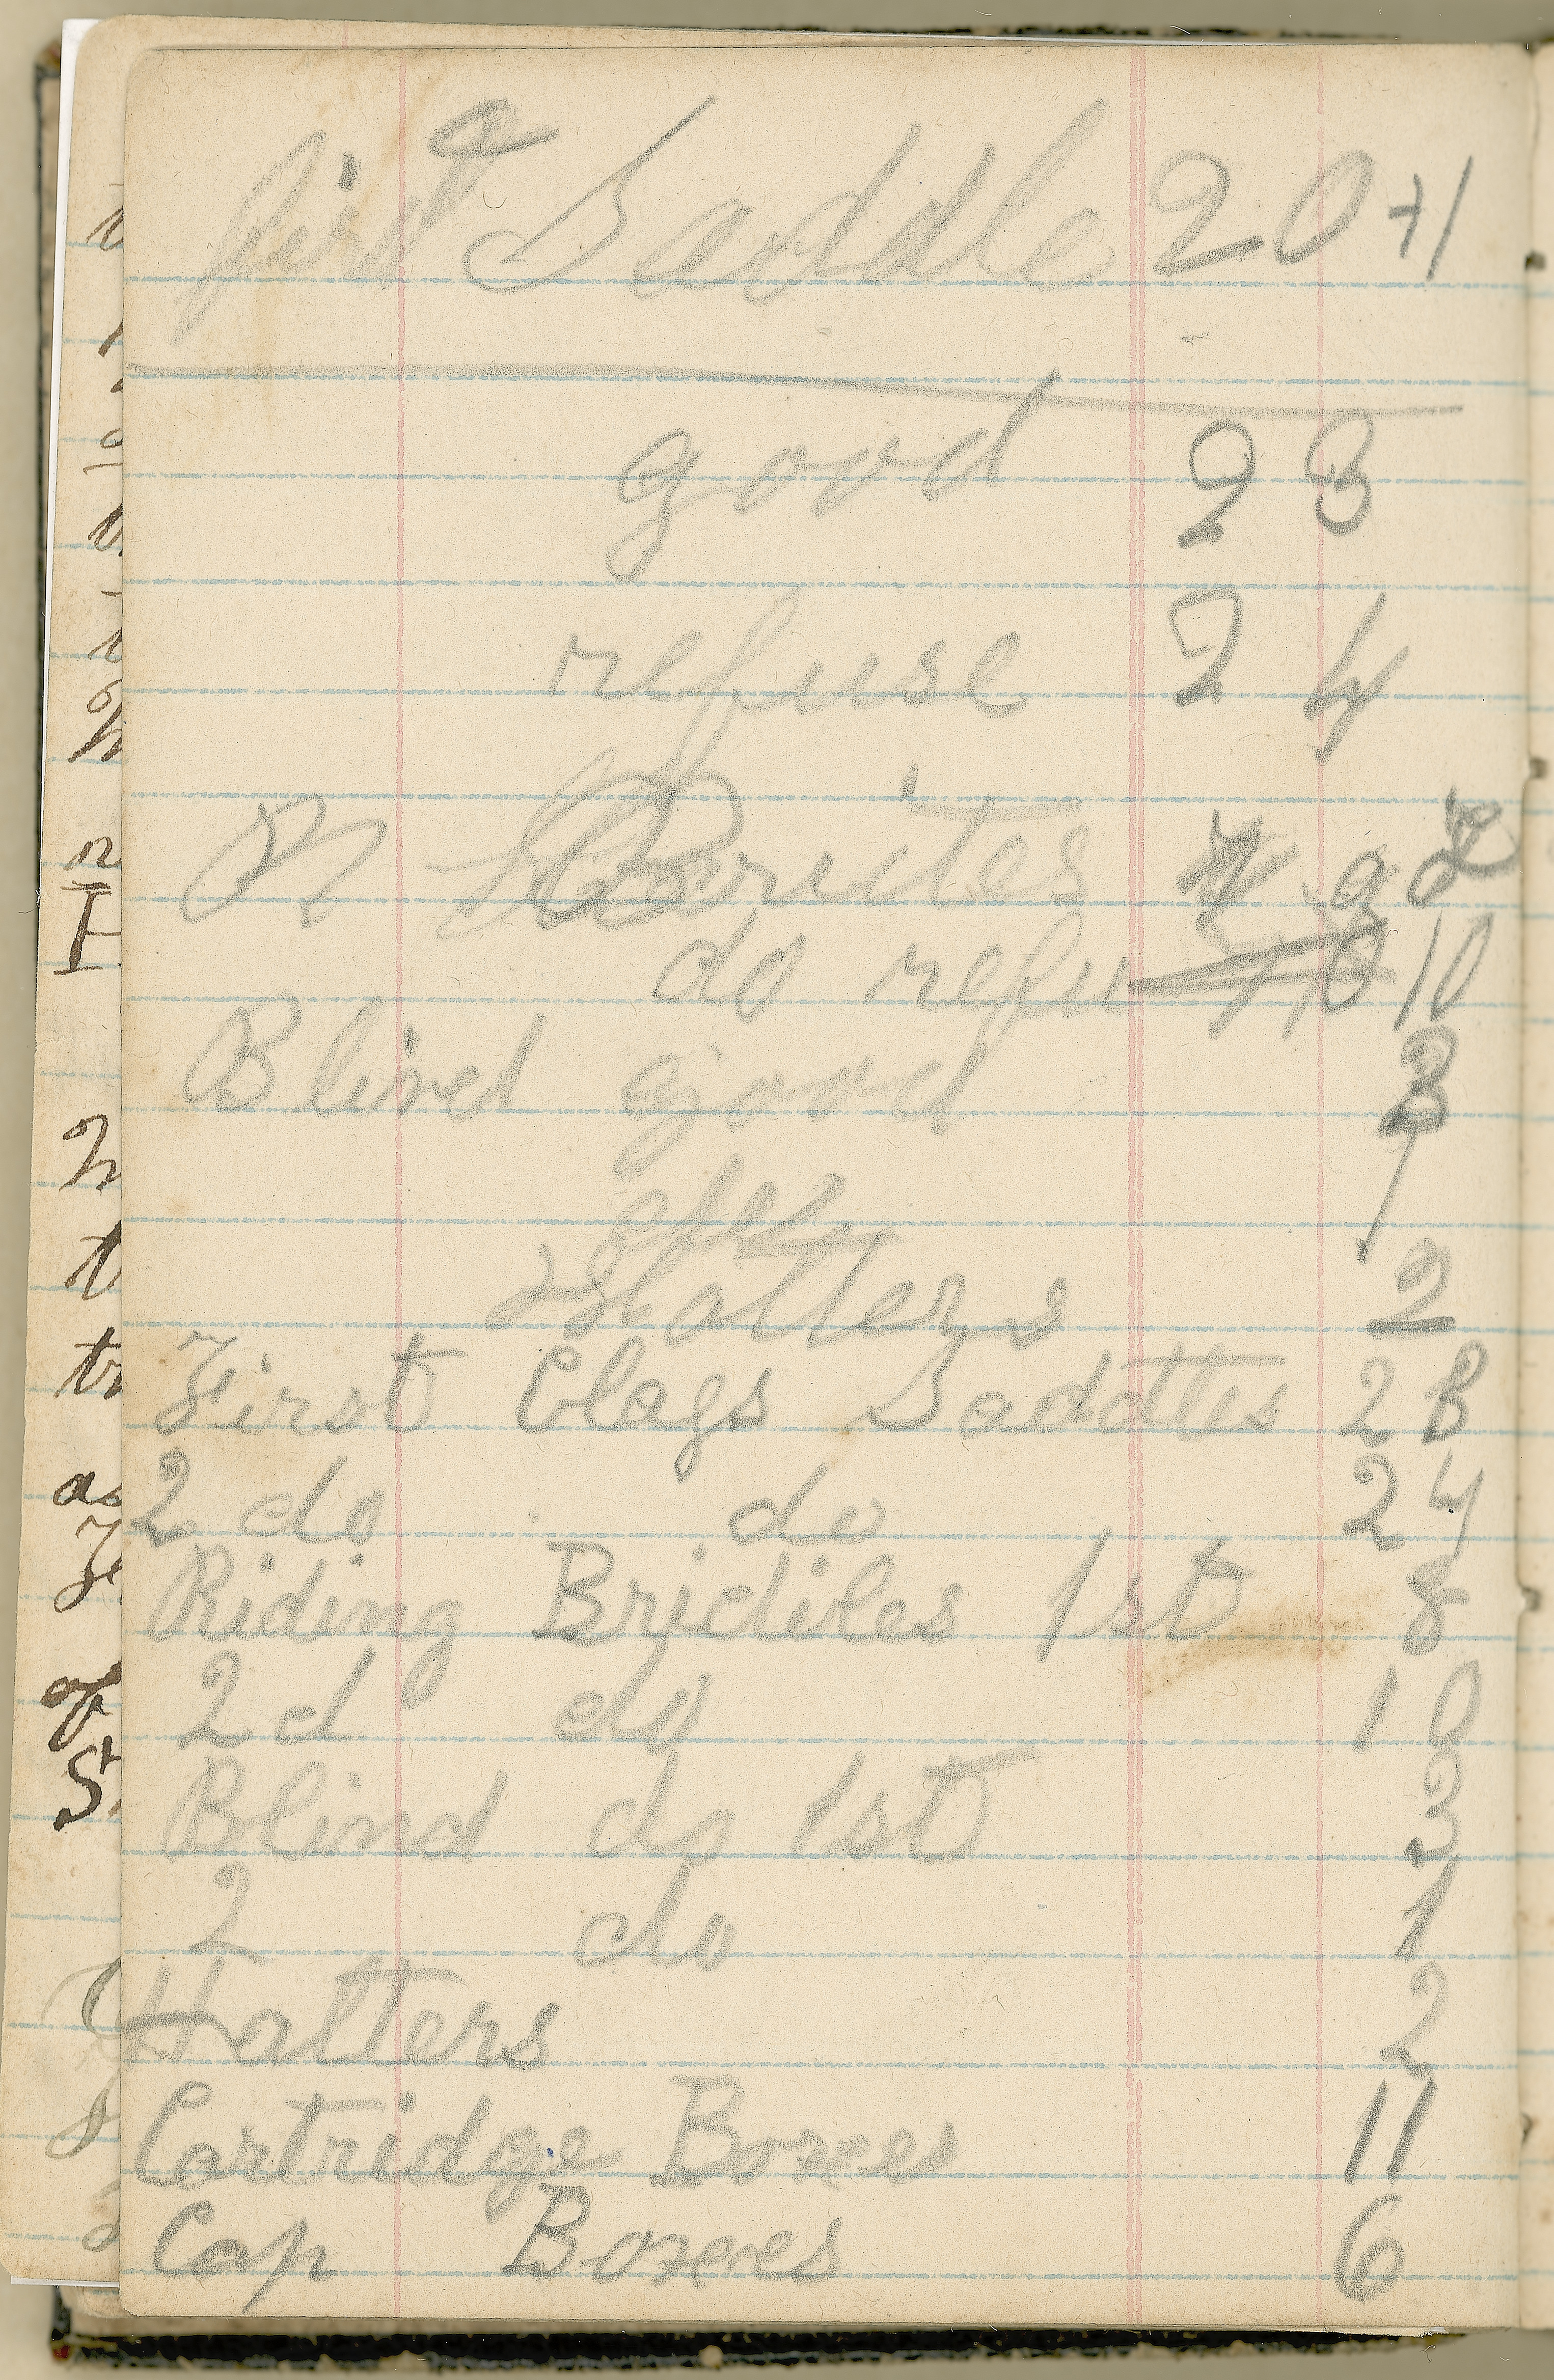 first Saddle 20 +1
good 23
refuse 24
do refu 10
Blind good 3
1
Halters 2
First Clags Saddles 28
2 do do 24
Riding Bridiles 1st 8
2d do 10
Blind do 1st 3
2 do 1
Halters 2
Cartridge Boxes 11
Cap Boxes 6